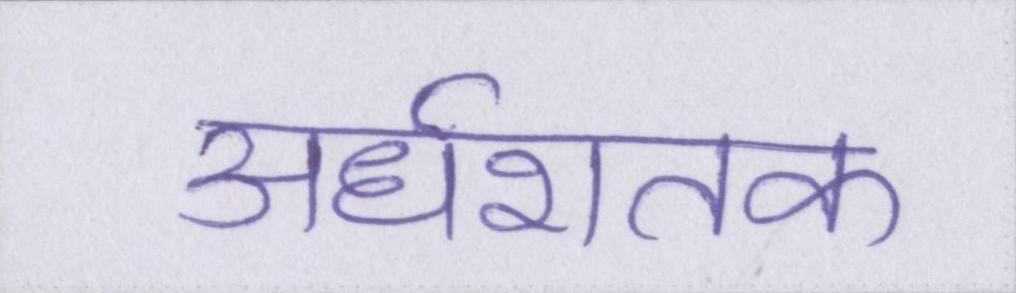 अर्धशतक